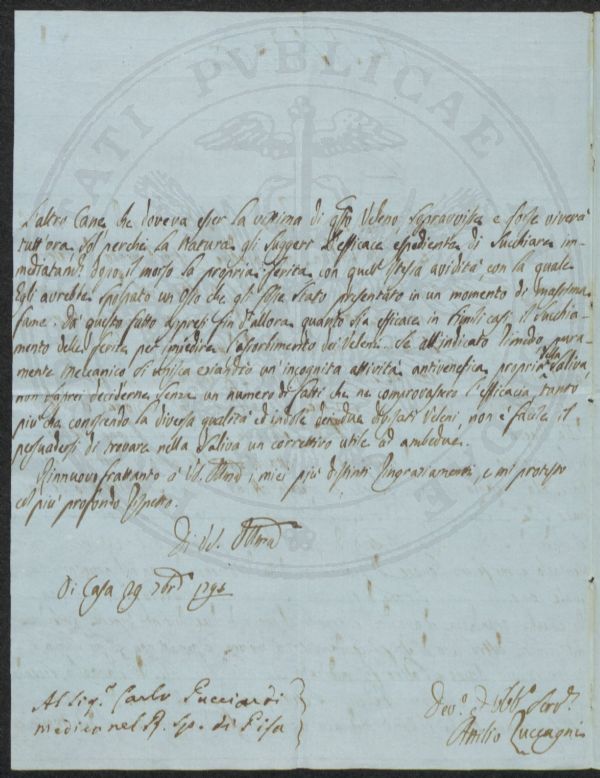 L'altro Cane, che doveva esser la vittima di q.to Veleno, sopravvisse e forse viverà
tutt'ora, sol perchè la Natura gli suggerì l'efficace espediente di succhiare im-
mediatam.te dopo il morso la propria ferita con quell'istessa avidità, con la quale
Egli avrebbe spolpato un Osso che gli fosse stato presentato in un momento di massima
fame. Da questo fatto appresi fin d'allora quanto sia efficace in simili casi il succhia-
mento delle ferite per impedire l'assorbimento dei Veleni. Se all'indicato rimedio pura-
mente meccanico si unisca eziandio un'incognita attività antivenefica propria della Saliva
non saprei deciderne senza un numero di fatti che ne comprovassero l'efficacia, tanto
più che conoscendo la diversa qualità ed indole dei due citati Veleni, non è facile il
persuadersi di trovare nella Saliva un correttivo utile ad ambedue.
Rinnuovo frattanto à VS. Ill.ma i miei più distinti Ringraziamenti, e mi protesto
col più profondo Rispetto.
Di VS. Ill.ma
Di Casa 29
Al Sig.r Carlo Lucciardi
medico nel R. Sp. di Pisa
Dev.o ed Obb.o Serv.re
Attilio Zuccagni
PUBLICAE